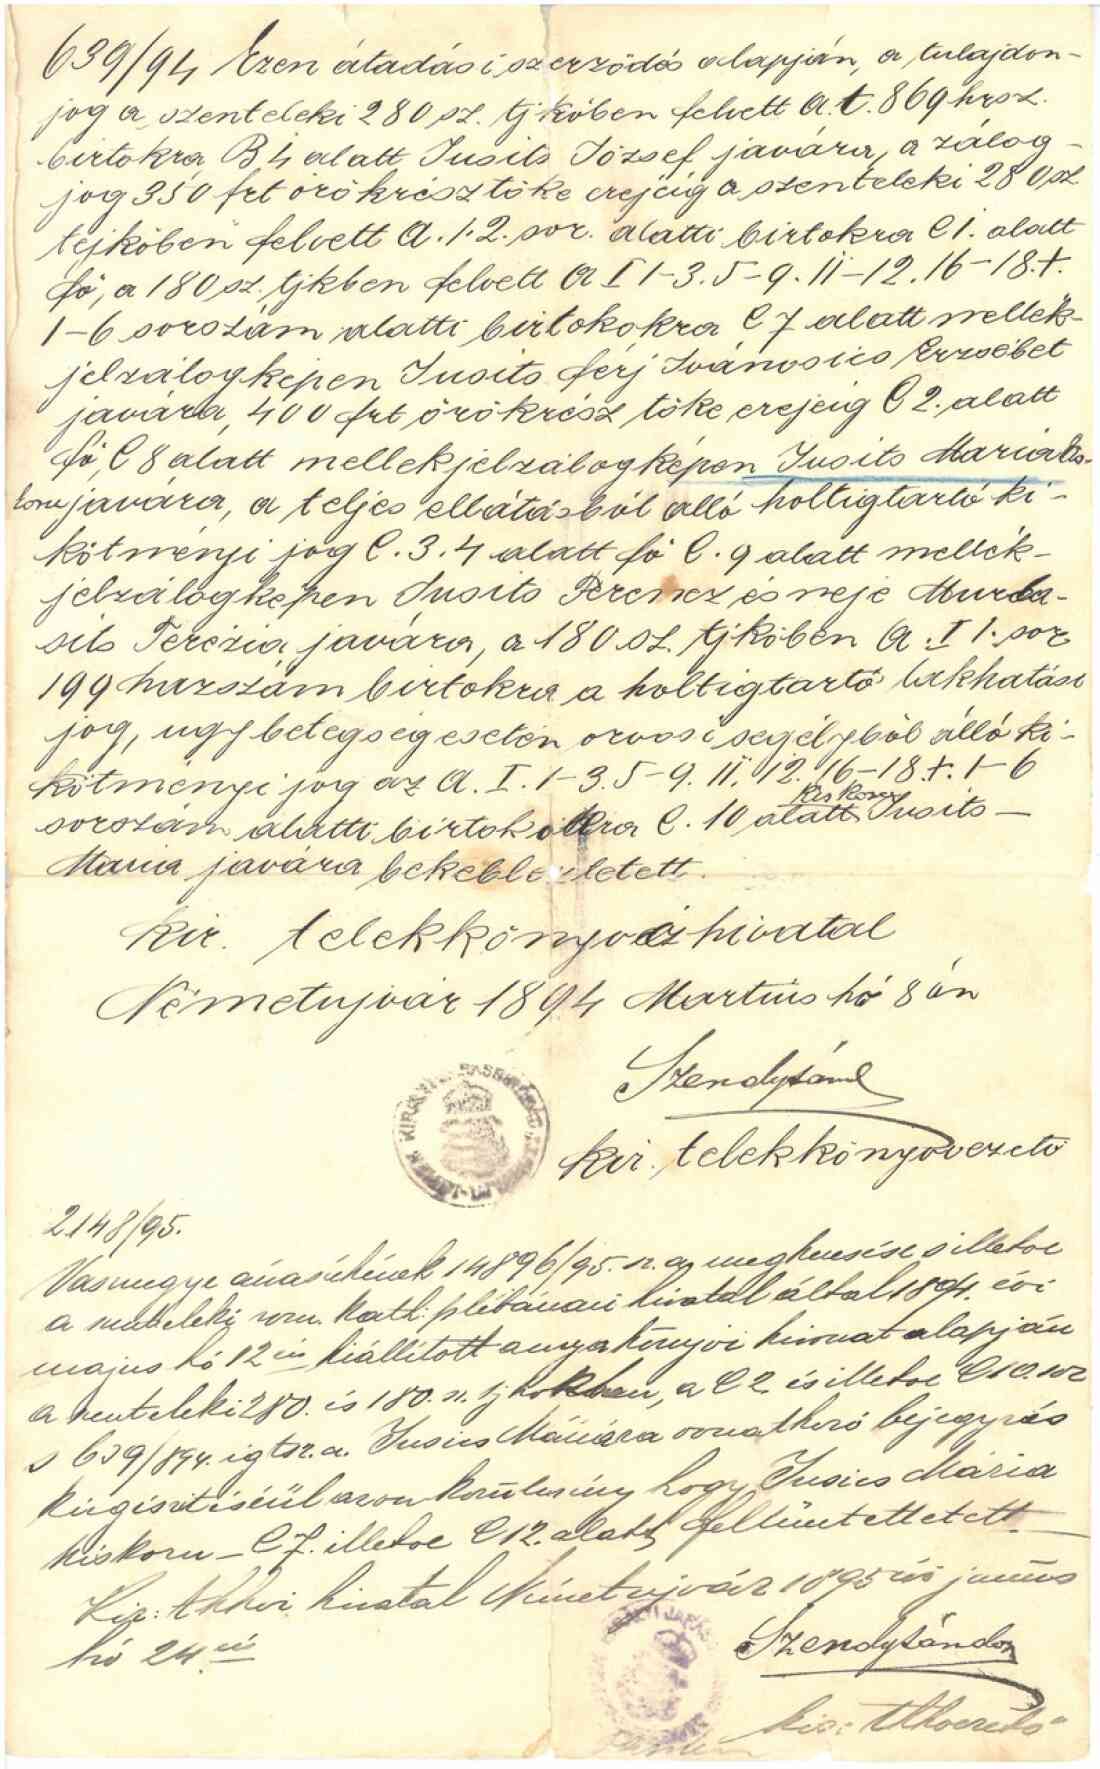 639/94 Ezen átadási szerződés alapján, a tulajdon-
jog a szenteleki 280 sz. tjkőben felvett A.t. 869 hrsz.
birtokra B 4 alatt Jusits József javára, a zálog-
jog 350 frt örökrész tőke erejéig a szenteleki 280 sz
tejkőben felvett A. 1. 2. sor. alatti birtokra C 1. alatt
fő, a 180 sz. tjkben felvett A I 1-3. 5-9. 11-12. 16-18. +.
1-6 sorszám alatti birtokokra C 7 alatt mellék-
jelzálogképen Jusits férj Ivánosics Erzsébet
javára, 400 frt örökrész tőke erejéig C 2. alatt
fő, C 8 alatt mellékjelzálogképen Jusits Mária kis-
koru javára, a teljes ellátásból álló holtigtartó ki-
kötményi jog C. 3. 4 alatt fő C. 9 alatt mellék-
jelzálogképen Jusits Ferencz és neje Murla-
sits Terézia javára, a 180 sz. tjkőben A. I 1. sor
199 hazszám birtokra a holtigtartó lakhatási
jog, ugy betegség esetén orvosi segélyből álló ki-
kötményi jog az A. I. 1-3. 5-9. 11. 12. 16-18 +. 1-6
kiskoru
sorszám alatti birtokokra C. 10 alatt Jusits-
Mária javára bekebleztetett.
kir. telekkönyvi hivatal
Németujvár 1894 Martius hó 8 án
Szendy Sánd
kir. telekkönyvvezető
2148/95.
Vasmegye árvaszékének 14896/95. sz. a. megkeresése s illetve
a szenteleki rom. kath. plébániai hivatal által 1894. évi
majus hó 12 én kiállított anyakönyvi kivonat alapján
a szenteleki 280. és 180. sz. tjkokban, a C 2 és illetve C 10. sor
s 639/894. igtsz. a. Jusics Máriára vonatkozó bejegyzés
kiegészitéséül azon körülmény hogy Jusics Mária
kiskoru - C 7. illetve C 12. alatt feltüntettetett.
Kir. tkkvi hivatal Németujvár 1895 évi junius
hó 24 én
Szendy Sándor
kir. tkkvezető